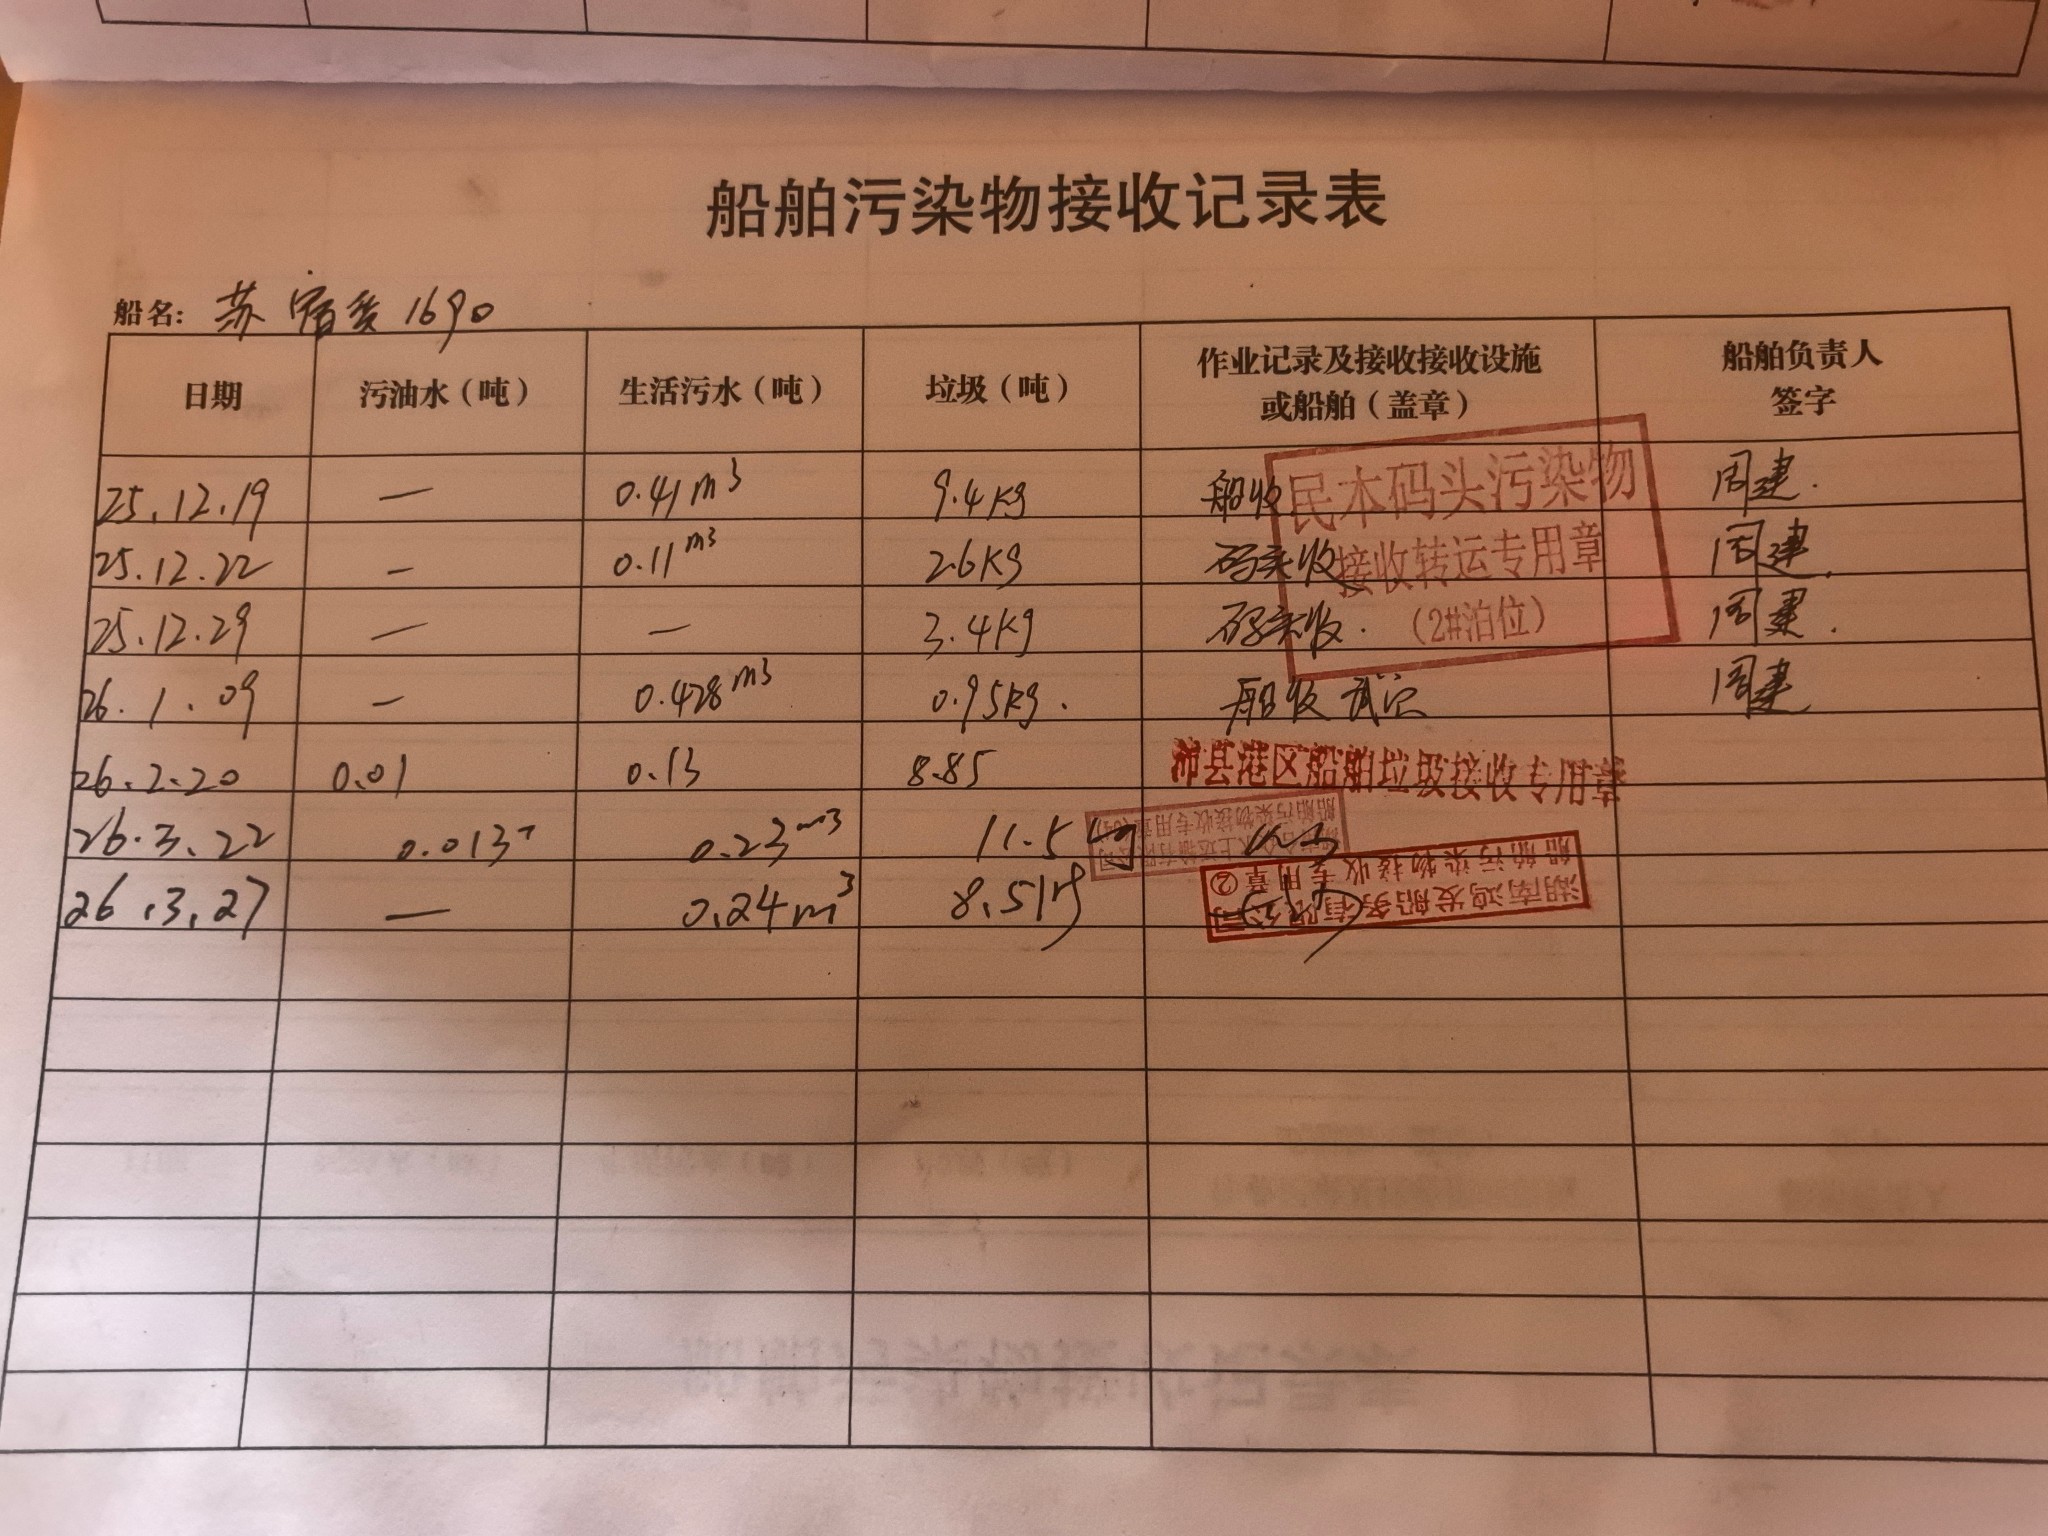 船舶污染物接收记录表
船名: 苏宿货1690
日期 污油水（吨） 生活污水（吨） 垃圾（吨） 作业记录及接收接收设施或船舶（盖章） 船舶负责人签字
25.12.19 — 0.41m³ 9.4kg 船收 周建.
25.12.22 — 0.11m³ 2.6kg 码头收 周建.
25.12.29 — — 3.4kg 码头收. 周建.
民本码头污染物
接收转运专用章
（2#泊位）
26.1.09 — 0.428m³ 0.95kg. 船收 武穴 周建
26.2.20 0.01 0.13 8.85 沛县港区船舶垃圾接收专用章
26.3.22 0.013T 0.23m³ 11.5kg
船舶污染物接收专用章
26.3.27 — 0.24m³ 8.5kg
湖南鸿发船务有限公司
船舶污染物接收专用章②